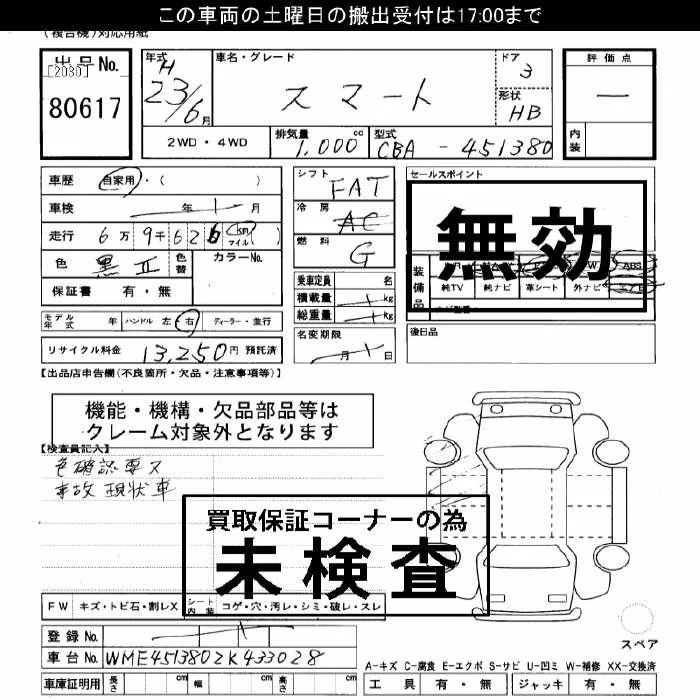 この車両の土曜日の搬出受付は17:00まで
(複合機)対応用紙
出品No.
[2030]
80617
年式
H
23/6月
車名・グレード
スマート
ドア
3
形状
HB
評価点
ー
内装
2WD・4WD
排気量
1,000 cc
型式
CBA - 451380
車歴 自家用・( )
車検 年 月
走行 6万9千626 km マイル ( )
色 黒Ⅱ 色替 カラーNo.
保証書 有・無
モデル年式 年 ハンドル 左 右 ディーラー・並行
リサイクル料金 13,250円 預託済
シフト FAT
冷房 AC
燃料 G
乗車定員 名
積載量 kg
総重量 kg
名変期限
月 日
セールスポイント
無効
装備品
ABS
純TV 純ナビ 革シート 外ナビ エアB
後日品
【出品店申告欄(不良箇所・欠品・注意事項等)】
機能・機構・欠品部品等は
クレーム対象外となります
【検査員記入】
色確認要ス
事故現状車
買取保証コーナーの為
未検査
FW キズ・トビ石・割レX シート内装 コゲ・穴・汚レ・シミ・破レ・スレ
登録No.
車台No. WME4513802K433028
車庫証明用 長さ cm 幅 cm 高さ cm
スペア
A-キズ C-腐食 E-エクボ S-サビ U-凹ミ W-補修 XX-交換済
工具 有・無 ジャッキ 有・無